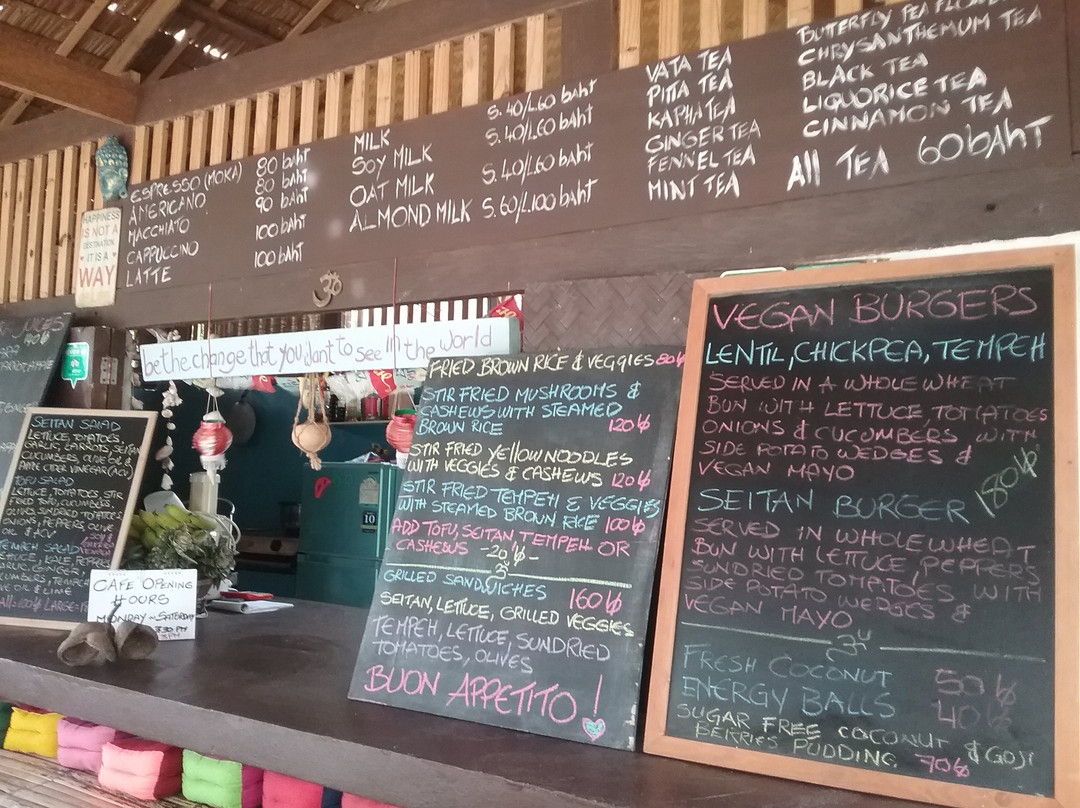 ESPRESSO (MOKA) 80 baht
AMERICANO 80 baht
MACCHIATO 90 baht
CAPPUCCINO 100 baht
LATTE 100 baht
MILK S.40/L.60 baht
SOY MILK S.40/L.60 baht
OAT MILK S.40/L.60 baht
ALMOND MILK S.60/L.100 baht
VATA TEA
PITTA TEA
KAPHA TEA
GINGER TEA
FENNEL TEA
MINT TEA
BUTTERFLY PEA
CHRYSANTHEMUM TEA
BLACK TEA
LIQUORICE TEA
CINNAMON TEA
All TEA 60 baht
HAPPINESS
IS NOT A
DESTINATION
IT IS A
WAY
be the change that you want to see in the world
SEITAN SALAD
LETTUCE, TOMATOES,
GARLIC, CARROTS, SEITAN
CUCUMBERS, OLIVE OIL &
APPLE CIDER VINEGAR (ACV)
TOFU SALAD
LETTUCE, TOMATOES, STIR
FRIED TOFU, CUCUMBERS,
OLIVES, SUNDRIED TOMATOES
ONIONS, PEPPERS, OLIVE
OIL & ACV
TEMPEH SALAD
CAFE OPENING
HOURS
MONDAY - SATURDAY
FRIED BROWN RICE & VEGGIES 80฿
STIR FRIED MUSHROOMS &
CASHEWS WITH STEAMED
BROWN RICE 120฿
STIR FRIED YELLOW NOODLES
WITH VEGGIES & CASHEWS 120฿
STIR FRIED TEMPEH & VEGGIES
WITH STEAMED BROWN RICE 100฿
ADD TOFU, SEITAN, TEMPEH OR
CASHEWS -20฿-
GRILLED SANDWICHES 160฿
SEITAN, LETTUCE, GRILLED VEGGIES
TEMPEH, LETTUCE, SUNDRIED
TOMATOES, OLIVES
BUON APPETITO!
VEGAN BURGERS
LENTIL, CHICKPEA, TEMPEH
SERVED IN A WHOLE WHEAT
BUN WITH LETTUCE, TOMATOES
ONIONS & CUCUMBERS, WITH
SIDE POTATO WEDGES &
VEGAN MAYO
180฿
SEITAN BURGER
SERVED IN WHOLE WHEAT
BUN WITH LETTUCE, PEPPERS
SUNDRIED TOMATOES WITH
SIDE POTATO WEDGES &
VEGAN MAYO
FRESH COCONUT 50฿
ENERGY BALLS 40฿
SUGAR FREE COCONUT & GOJI
BERRIES PUDDING 70฿